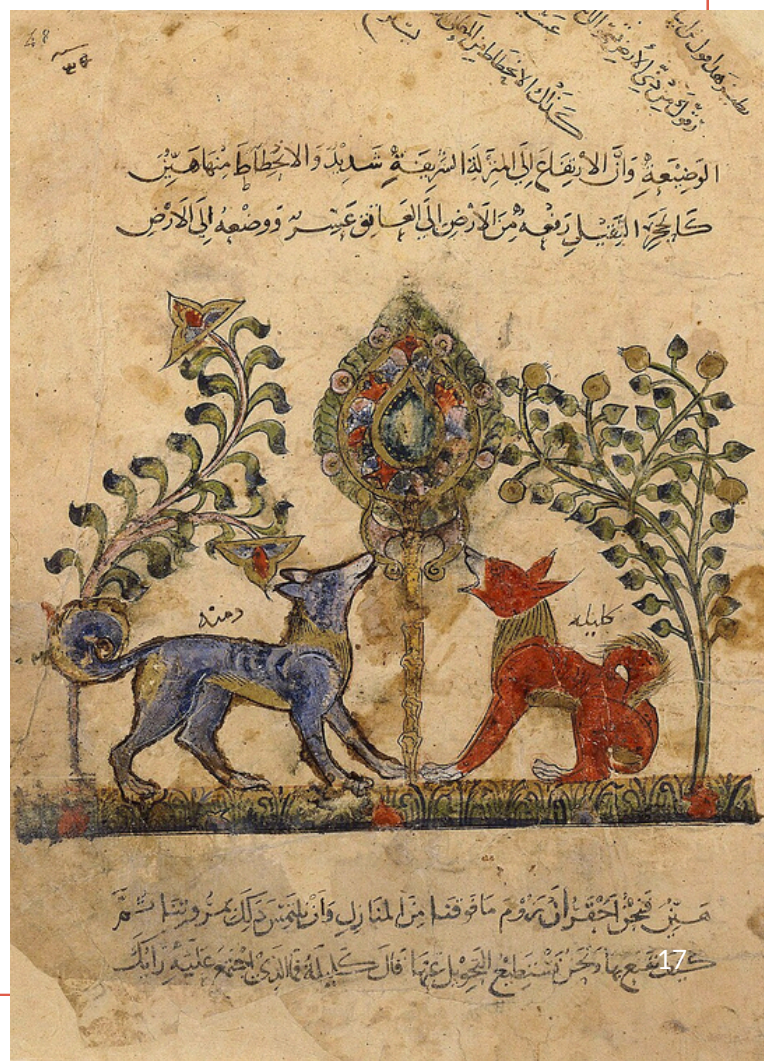 كذلك الانحطاط من
الوضيعة وان الارتفاع الى المنزلة الشريفة شديد والانحطاط منها هين
كالحجر الثقيل رفعه من الارض الى العاتق عسر ووضعه الى الارض
دمنه
كليله
هين فنحن احق ان نروم ما فوقنا من المنازل وان نلتمس ذلك بمروتنا ثم
كيف نقنع بها ونحن نستطيع التحويل عنها قال كليلة فما الذي اجتمع عليه رايك
17